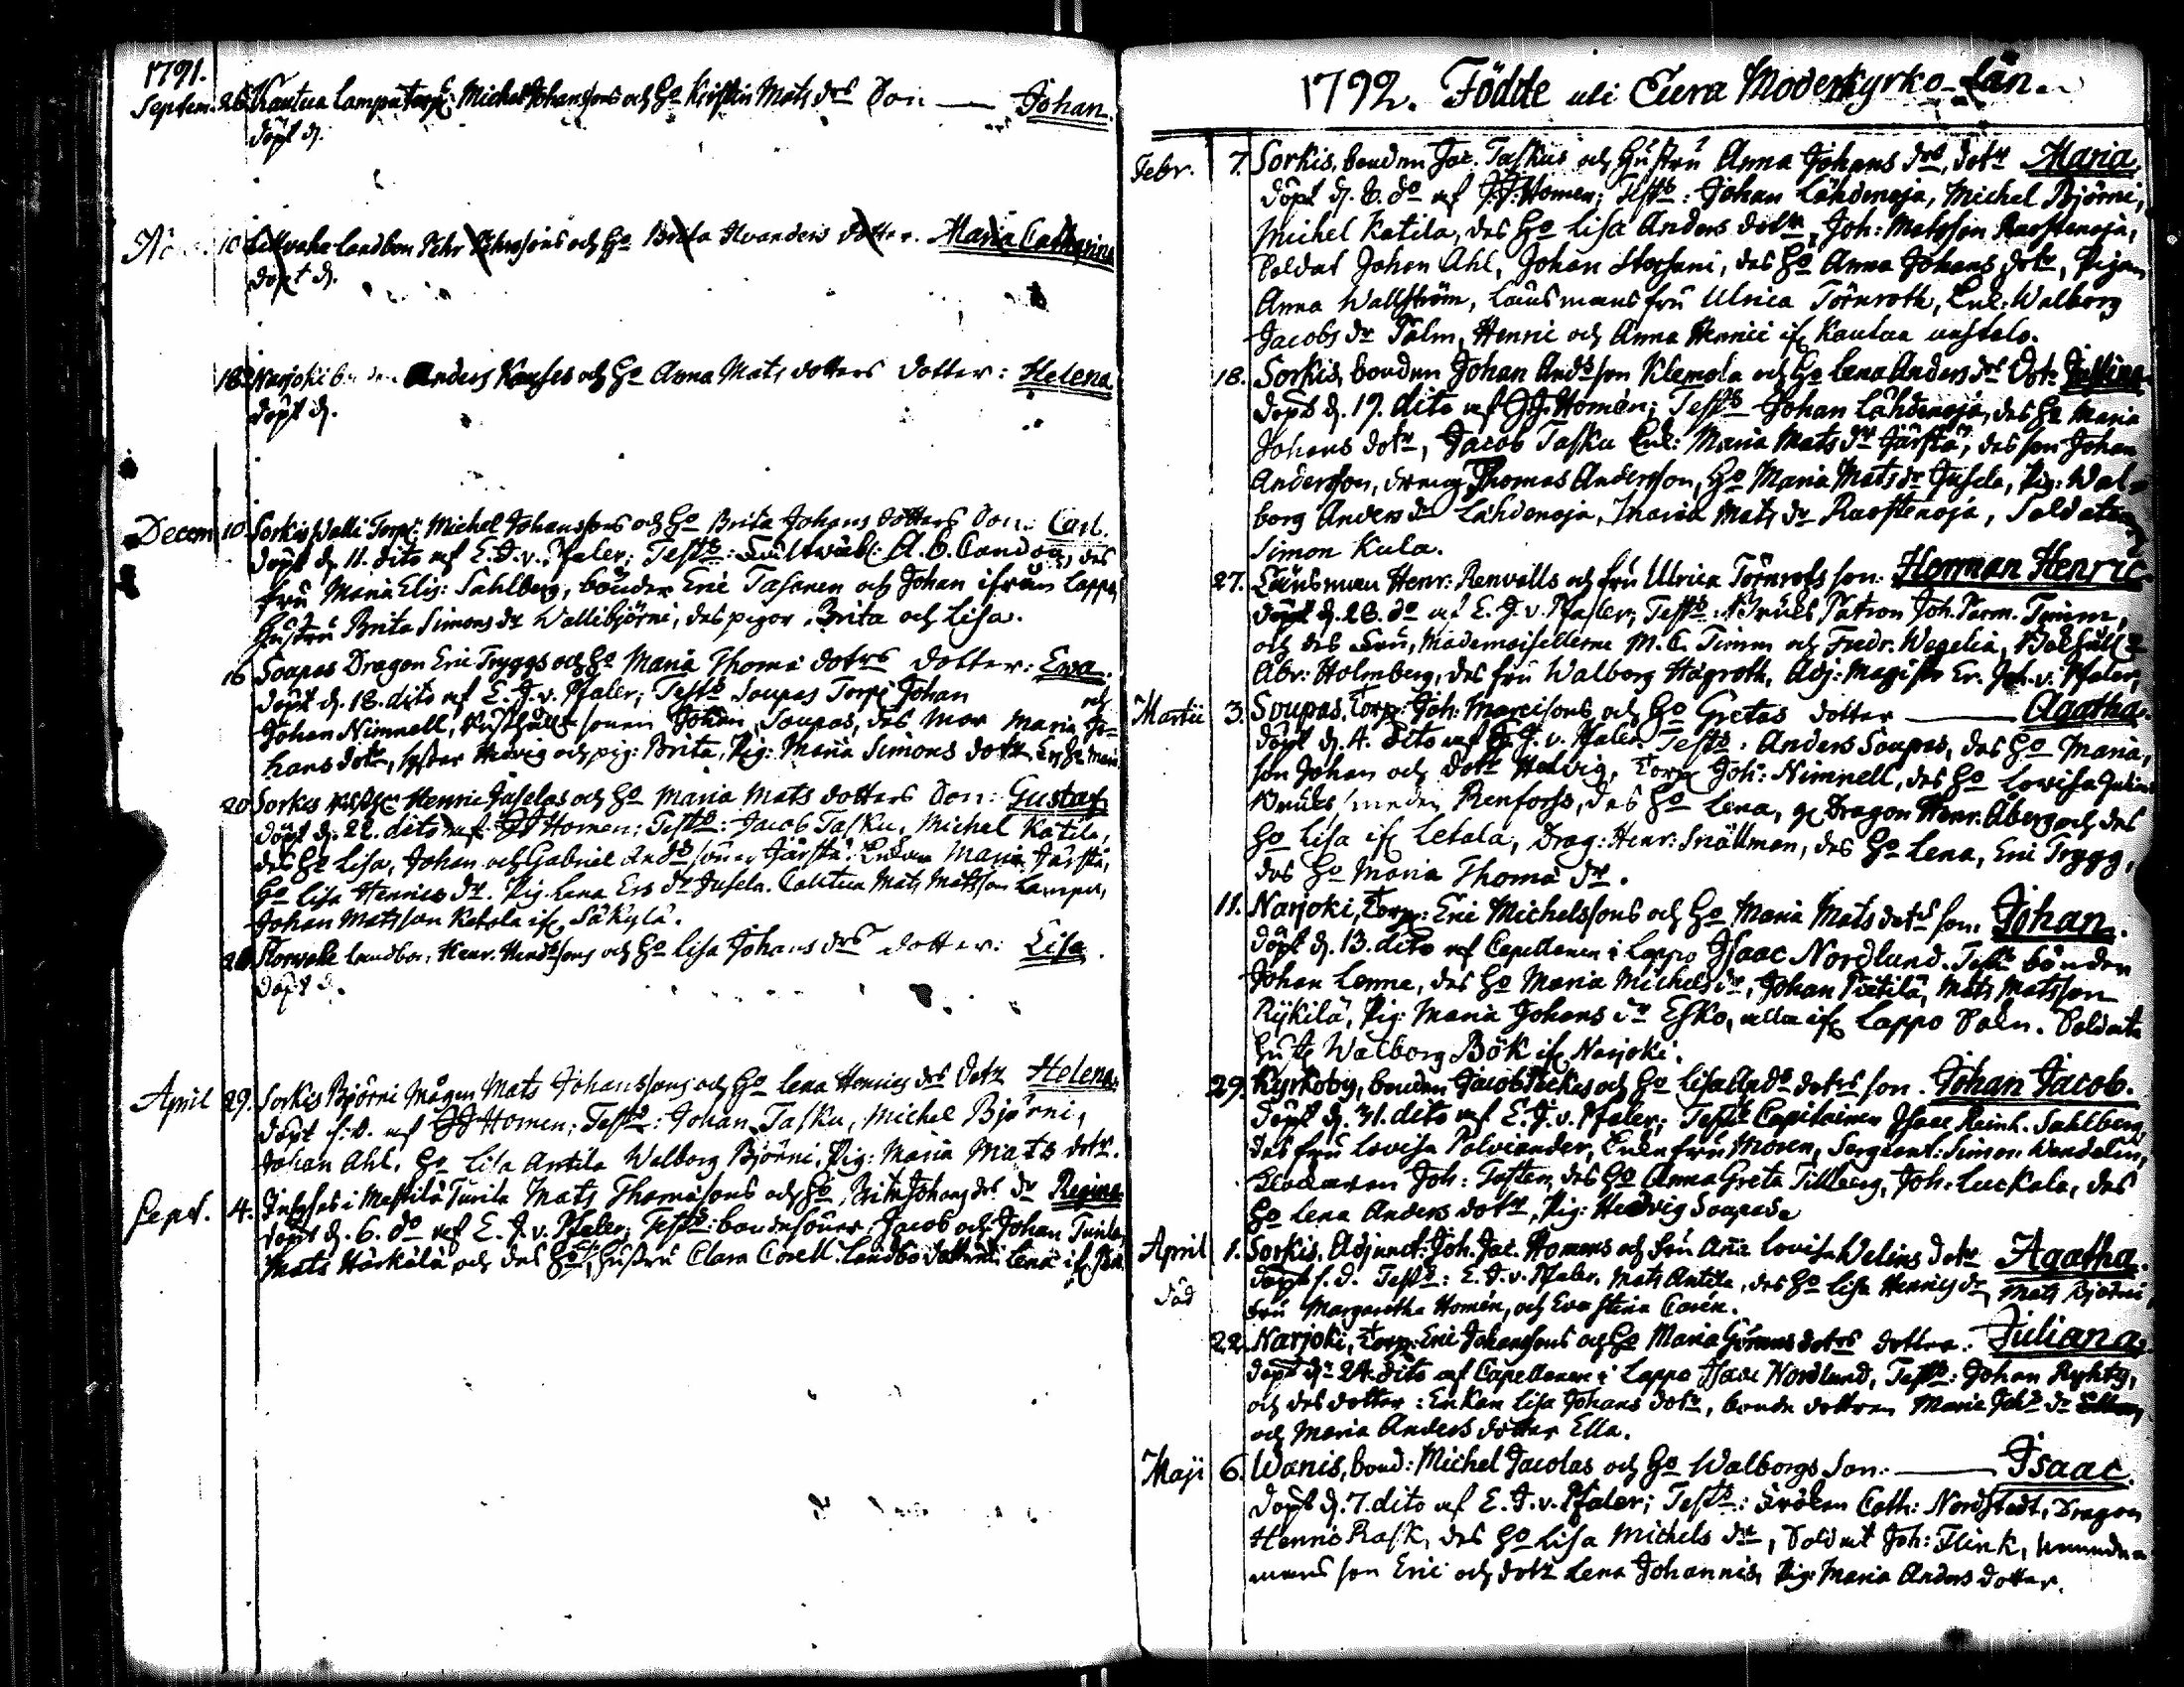 1791.
Septem. 26. Kautua Lampu Torp: Michel Johanssons och Ho Kristin Mats drs Son — Johan.
döpt d.
10. Landbon Pehr Pehrssons och Ho Brita Evanders dotter. Maria Catharina
döpt d.
18. Narjoki bonden Anders och Ho Anna Mats dotters dotter: Helena
döpt d.
Decem. 10. Sorkis Walli Torp: Michel Johanssons och Ho Brita Johans dotters Son. Carl.
döpt d. 11. dito af E. J. v. Pfaler; Test: des
fru Maria Elis: Sahlberg, bönder Eric Tasanen och Johan ifrån Lappo,
Hustru Brita Simons dr Wallibjörni, des pigor Brita och Lisa.
16 Soupas Dragon Eric Tryggs och Ho Maria Thomæ dotrs dotter: Ewa.
döpt d. 18. dito af E. J. v. Pfaler; Test: Soupas Torp: Johan
och
Johan Nimnell, sonen Johan Soupas, des Mor Maria Jo-
hans dotr, syster Hedvig och pig: Brita, Pig: Maria Simons dotr
20 Sorkis Henric Juselas och Ho Maria Mats dotters Son: Gustaf
döpt d. 22. dito af JJ Homen; Test: Jacob Tasku, Michel Katila,
des Ho Lisa, Johan och Gabriel Andssöner Järstä: Enkan Maria Järstä,
Ho Lisa Henrics dr. Pig. Lena Ers dr Jusela. Cautua Mats Matsson Lampu,
Johan Matsson Ketola if Säkylä.
28. landbon, Henr. Hendssons och Ho Lisa Johans drs dotter: Lisa.
döpt d.
April 29. Sorkis Björni Mågen Mats Johanssons och Ho Lena Henrics drs dotr Helena.
döpt s. d. af JJ Homen; Test: Johan Tasku, Michel Björni,
Johan Ahl, Ho Lisa Antila Walborg Björni, Pig: Maria Mats dotr.
Sept. 4. i Mestilä Tunila Mats Thomæsons och Ho Brita Johans drs dr Regina
döpt d. 6. do af E. J. v. Pfaler; Test: bondesöner Jacob och Johan Tunila,
Mats Härkälä och des Ho, Hustru Clara Corell. Landbo Lena if
1792. Födde uti Eura Moderkyrko-Län.
Febr. 7. Sorkis, bonden Jac. Taskus och Hustru Anna Johans drs, dotr Maria.
döpt d. 8. do af J. J. Homen; Test: Johan Lähdenoja, Michel Björni,
Michel Katila, des Ho Lisa Anders dotr, Joh: Matsson Raustenoja,
Soldat Johan Ahl, Johan Storfani, des Ho Anna Johans dotr, Pigan
Anna Wallström, Länsmansfru Ulrica Törnroth, Enk: Walborg
Jacobs dr Palm, Henric och Anna Henrici if Kautua
18. Sorkis, bonden Johan Andsson Klemola och Ho Lena Anders drs Dotr Justina
döpt d. 19. dito af J J. Homén; Test Johan Lähdenoja, des Ho Maria
Johans dotr, Jacob Tasku Enk: Maria Mats dr Järstä, des son Johan
Andersson, dreng Thomas Andersson, Ho Maria Mats dr Jusela, Pig: Wal-
borg Anders dr Lähdenoja, Maria Mats dr Raustenoja, Soldaten
Simon Kula.
27. Länsman Henr: Renvalls och fru Ulrica Törnroths son. Herman Henric
döpt d. 28. do af E. J. v. Pfaler; Test: Bruks Patron Joh. Herm. Timm,
och des Fru, Mademoisellerne M. C. Timm och Fredr. Wegelia,
Abr: Holmberg, des fru Walborg Hägroth, Adj: Magister Er. Joh. v. Pfaler,
Martii 3. Soupas, Torp: Joh: Marcisons och Ho Gretas dotter — Agatha.
döpt d. 4. dito af E. J. v. Pfaler. Test: Anders Soupas, des Ho Maria,
son Johan och dotr Hedvig, Torp: Joh: Nimnell, des Ho Lovisa Julin
Bruks smeden Renforss, des Ho Lena, Dragon Henr. Åberg och des
Ho Lisa if Letala, Drag: Henr: Snällman, des Ho Lena, Eric Trygg,
des Ho Maria Thomæ dr.
11. Narjoki, Torp: Eric Michelssons och Ho Maria Mats dotrs son. Johan.
döpt d. 13. dito af Capellanen i Lappo Isaac Nordlund. Test: bönder
Johan Lenne, des Ho Maria Michels dr, Johan Pietilä, Mats Matsson
Rykilä, Pig: Maria Johans dr Esko, alla if Lappo Soln. Soldats
Hust: Walborg Bök if Narjoki.
29. Kyrkoby, bonden Jacob och Ho Lisa Ands dotrs son. Johan Jacob.
döpt d. 31. dito af E. J. v. Pfaler; Test: Capitainen Isaac Reinh. Sahlberg,
des fru Lovisa Polviander, Enkefru Moren, Sergeant: Simon Wendelin,
Joh: Tosten, des Ho Anna Greta Tillberg, Joh: Luckala, des
Ho Lena Anders dotr, Pig: Hedvig Soupas
April 1. Sorkis, Adjunct: Joh. Jac. Homens och Fru Ana Lovisa Welins dotr Agatha.
död
döpt s. d. Test: E. J. v. Pfaler. Mats Antila, des Ho Lisa Henrics dr, Mats Björni,
fru Margaretha Homén, och Eva Stina Carén.
22. Narjoki, Torp: Eric Johanssons och Ho Maria Simons dotrs dotter. Juliana
döpt d. 24. dito af Capellanen i Lappo Isaac Nordlund, Test: Johan Ryhty,
och des dotter: Enkan Lisa Johans dotr, bonde dottren Maria Johs dr
och Maria Anders dotter Ella.
Maji 6. Wanis, bond: Michel Jacolas och Ho Walborgs Son. — Isaac.
döpt d. 7. dito af E. J. v. Pfaler; Test: Fröken Cath: Nordstedt, Dragon
Henric Rask, des Ho Lisa Michels dr, Soldat Joh: Flink,
mans son Eric och dotr Lena Johannis, Pig: Maria Anders dotter.